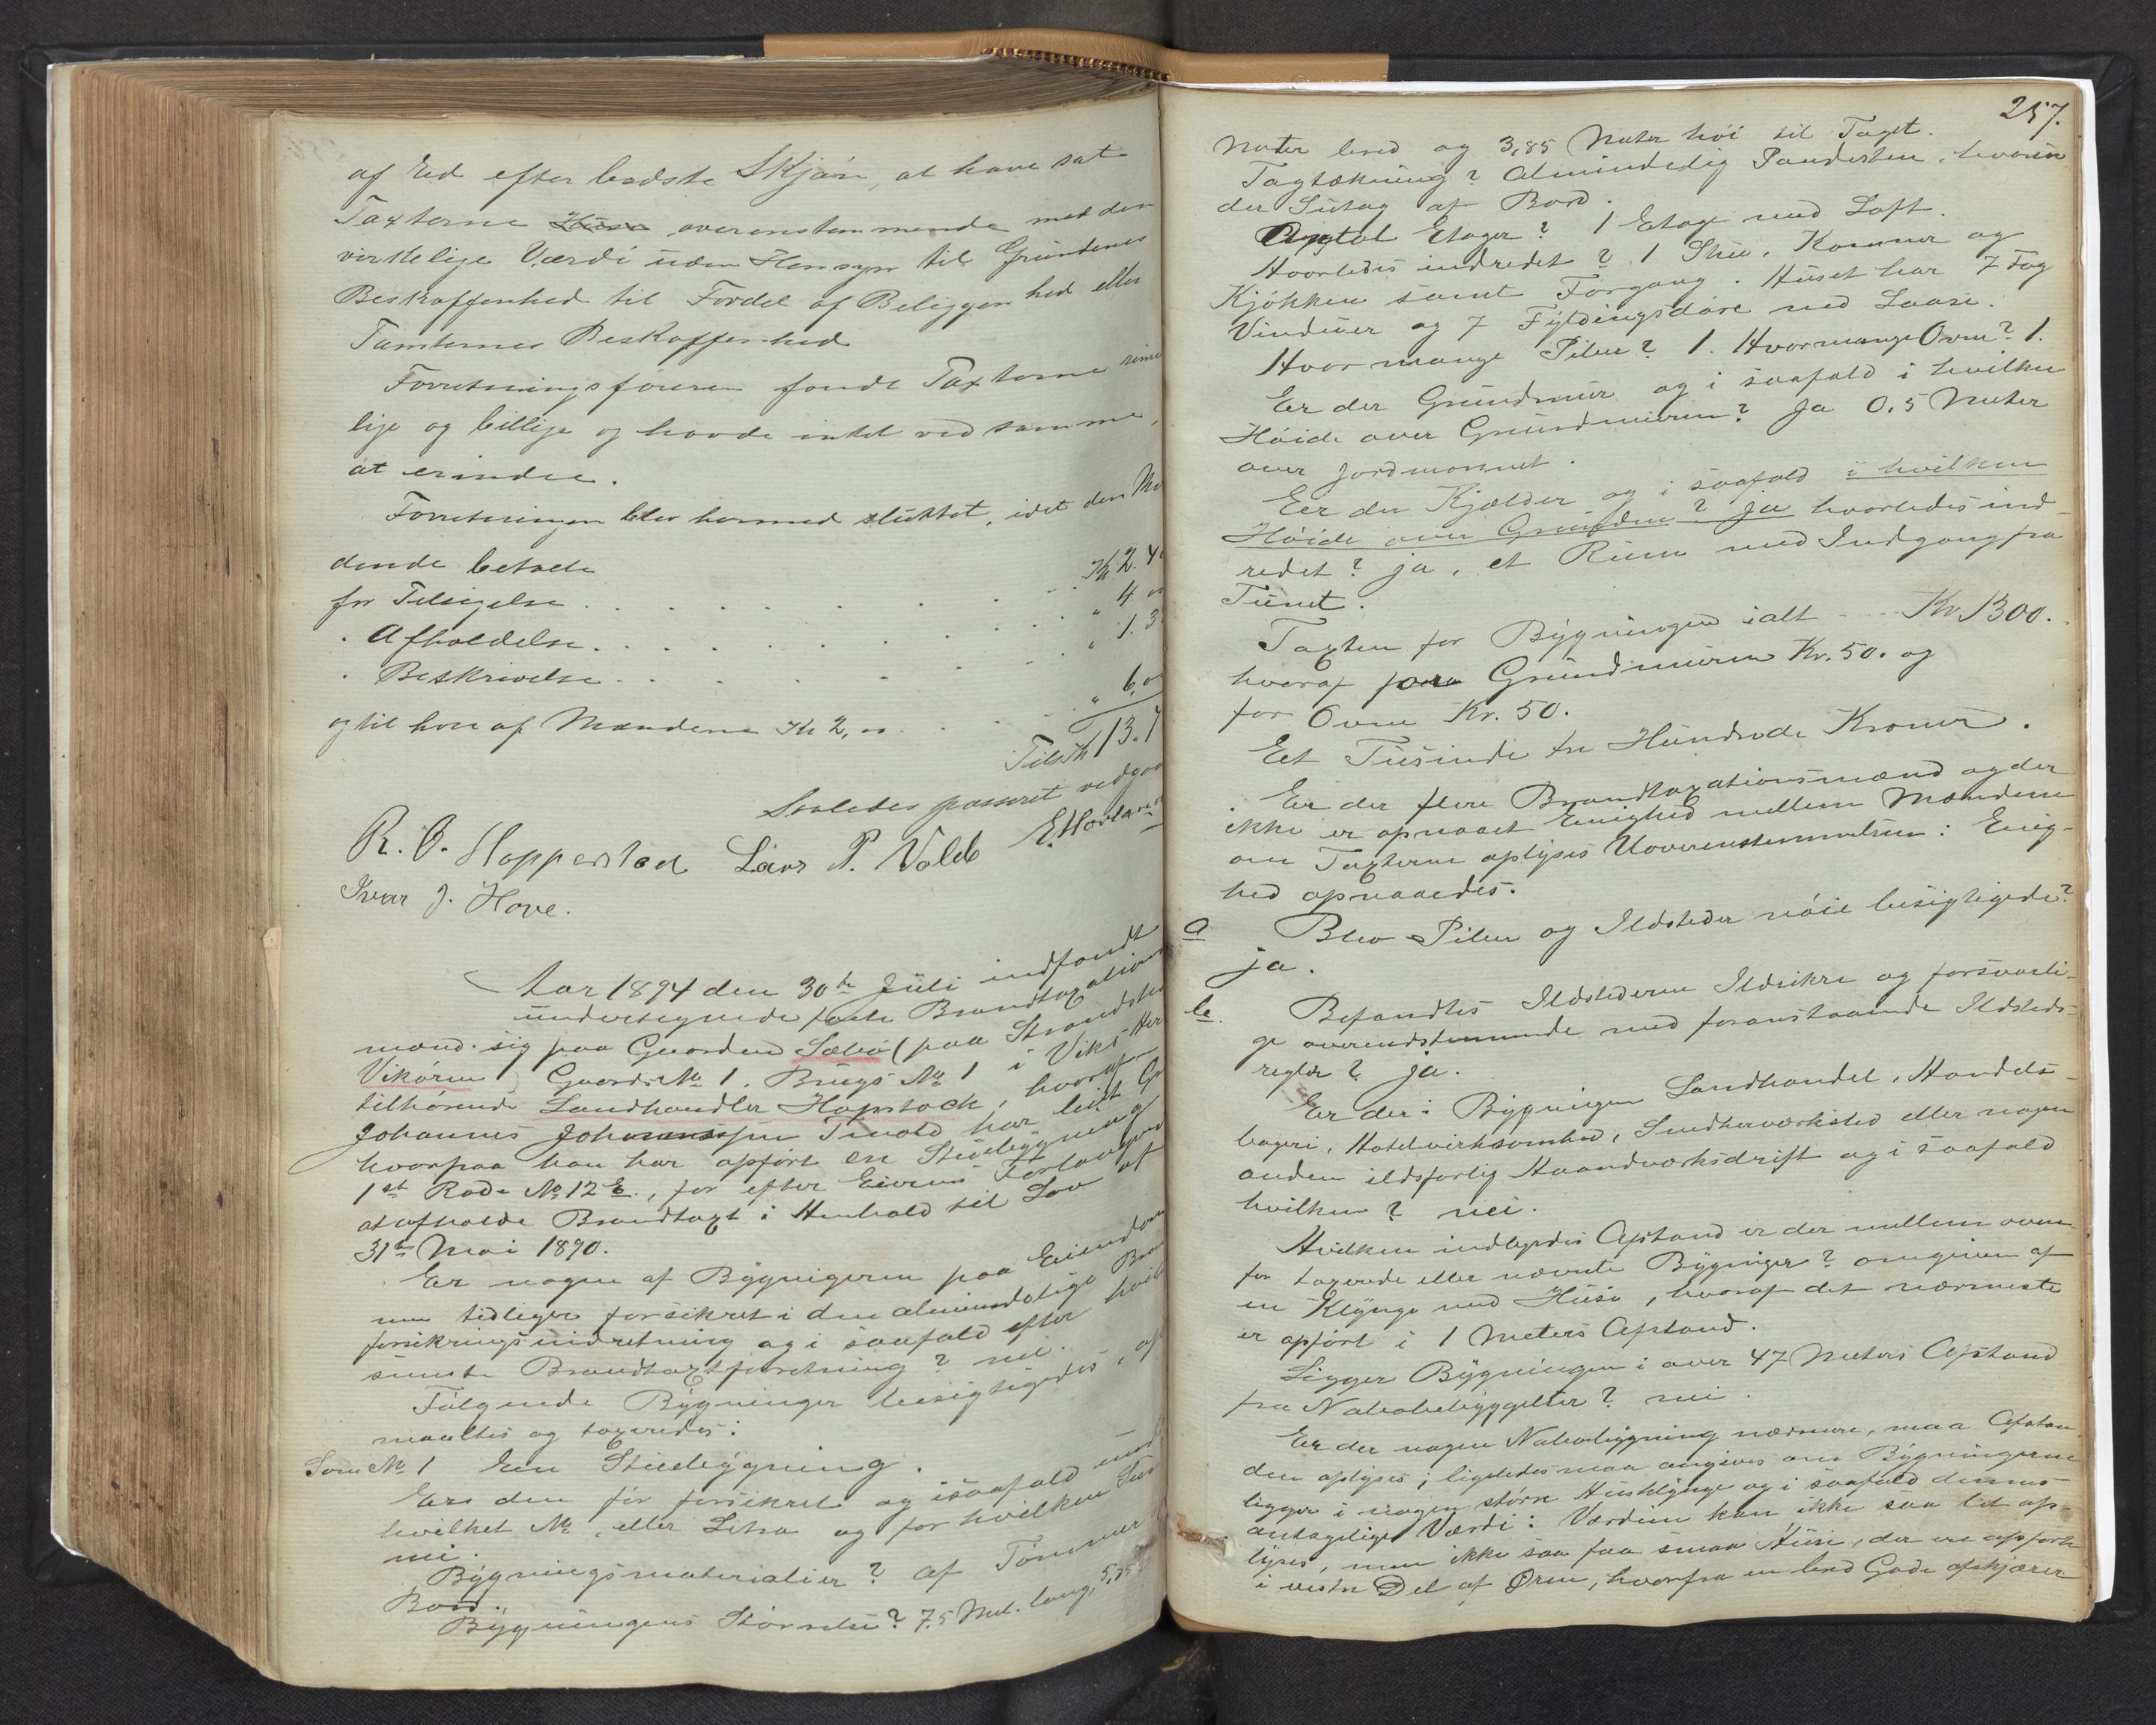 af Ed efter bedste Skjøn, at have sat
Taxterne overensstemmende med den
virkelige Værdi uden Hensyn til Grundenes
Beskaffenhed til Fordel af Beliggenhed eller
Tomternes Beskaffenhed
Forretningsføreren fandt Taxterne rime
lige og billige og havde intet ved samme,
at erindre.
Forretningen blev hermed sluttet, idet den
dende betalte
for Tilsigelse . . . . . . . Kr 2.4
" Afholdelse . . . . . . . " 4
" Beskrivelse . . . . . . " 1.3
og til hver af Mændene Kr 2,00 . . . " 6.0
Tils Kr 13.7
Saaledes passeret vedgaa
R. O. Hopperstad Lars P. Vold E. Hovland
Ivar J. Hove.
Aar 1894 den 30te Juli indfandt
undertegnede faste Brandtaxations
mænd sig paa Gaarden Sæbø (paa Strandsted
Vikøren) Gaards No 1. Brugs No 1 i Viks Her
tilhørende Landhandler Hopstock, hvoraf
Johannes Johannessen Tenold har leiet Gr
hvorpaa han har opført en Stuebygning
1st Rode No 12 E., for efter Eierens Forlangend
at afholde Brandtaxt i Henhold til Lov af
31te Mai 1890.
Er nogen af Bygnigerne paa Eiendom
men tidligere forsikret i den almindelige Bran
forsikringsindretning og i saafald efter hvil
seneste Brandtaxtforretning? nei.
Følgende Bygninger besigtigedes, op
maaltes og taxeredes:
Som No 1 En Stuebygning.
Er den før forsikret og isaafald und
hvilket No, eller Litra og for hvilken Sum
nei.
Bygningsmaterialier? af Tømmer
Bord.
Bygningens Størrelse? 7,5 Met. lang, 5,35
257.
Meter bred og 3,85 Meter høi til Taget.
Tagtækning? Almindelig Pandesten, hvorun
der Sutag af Bord.
Antal Etager? 1 Etage med Loft.
Hvorledes indredet? 1 Stue, Kammer og
Kjøkken samt Forgang. Huset har 7 Fag
Vinduer og 7 Fyldingsdøre med Laase.
Hvor mange Piber? 1. Hvormange Ovne? 1.
Er der Grundmur og i saafald i hvilken
Høide over Grundmuren? Ja 0,5 Meter
over Jordmonnet.
Er der Kjælder og i saafald i hvilken
Høide over Grunden? Ja hvorledes ind-
redet? ja, et Rum med Indgang fra
Tunet.
Taxten for Bygningen ialt - - - Kr. 1300.
hvoraf paa Grundmuren Kr. 50. og
for Ovne Kr. 50.
Et Tusinde tre Hundrede Kroner.
Er der flere Brandtaxationsmænd og der
ikke er opnaaet Enighed mellem Mændene
om Taxterne oplyses Uoverenstemmelsen: Enig-
hed opnaaedes.
a Blev Piber og Ildsteder nøie besigtigede?
ja.
b. Befandtes Ildstederne Ildsikre og forsvarli-
ge overendstemmende med foranstaaende Ildsteds-
regler? ja.
Er der i Bygningen Landhandel, Handels-
bageri, Hotelvirksomhed, Smedkerværksted eller nogen
anden ildsfarlig Haandværksdrift og i saafald
hvilken? nei.
Hvilken indbyrdes Afstand er der mellem oven-
for taxerede eller nævnte Bygninger? omgiven af
en Klynge med Huse, hvoraf det nærmeste
er opført i 1 Meters Afstand.
Ligger Bygningen i over 47 Meters Afstand
fra Nabobebyggelser? nei.
Er der nogen Nabobygning nærmere, maa Afstan
den oplyses; ligeledes maa angives om Bygningerne
ligger i nogen større Husklynge og i saafald dennes
antagelige Værdi: Værdien kan ikke saa let op-
lyses, men ikke saa faa smaa Huse, der ere opført
i vestre Del af Øren, hvorfra en bred Gade afskjærer